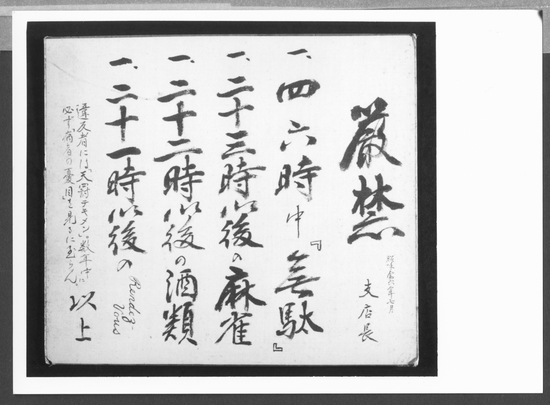 厳禁
支店長
一、四六時中『無駄』
一、二十三時以後の麻雀
一、二十二時以後の酒類
一、二十一時以後の Rendez-Vous
違反者には天罰テキメン、数年中に
必ず の憂目を見るに至らん
以上